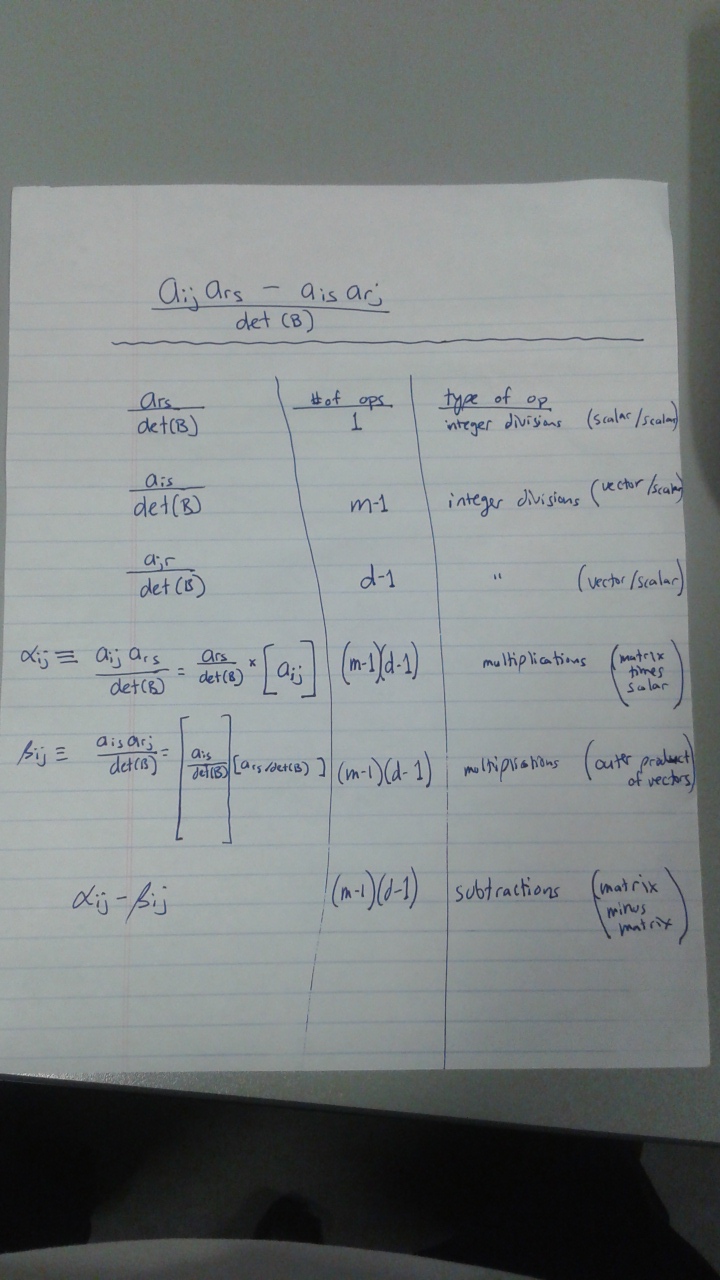 aij ars − ais arj
det (B)
ars
det(B)
# of ops
1
type of op
integer divisions (scalar/scalar)
ais
det(B)
m-1
integer divisions (vector/scalar)
air
det(B)
d-1
" (vector/scalar)
αij ≡ aij ars / det(B) = ars / det(B) × [aij]
(m-1)(d-1)
multiplications (matrix
times
scalar)
βij ≡ ais arj / det(B) = [ais / det(B)] [ars/det(B)]
(m-1)(d-1)
moltiplications (outer product
of vectors)
αij − βij
(m-1)(d-1)
subtractions (matrix
minus
matrix)